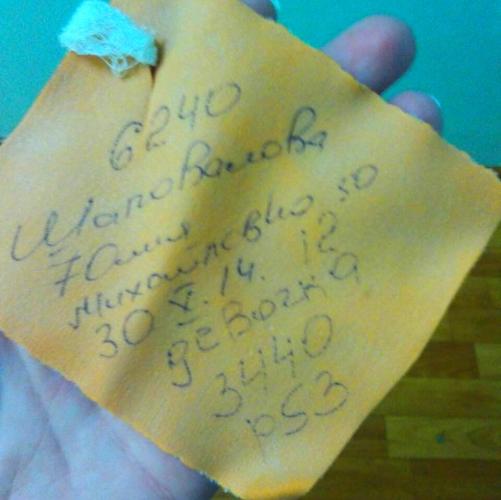 6240
Шаповалова
Юлия
Михайловна
30 X.14. 12 50
девочка
3440
р53